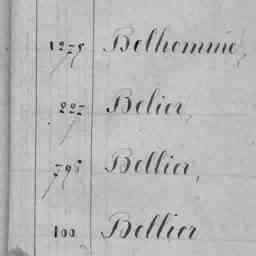 1275 Belhomme,
227 Belier,
795 Bellier,
100 Bellier